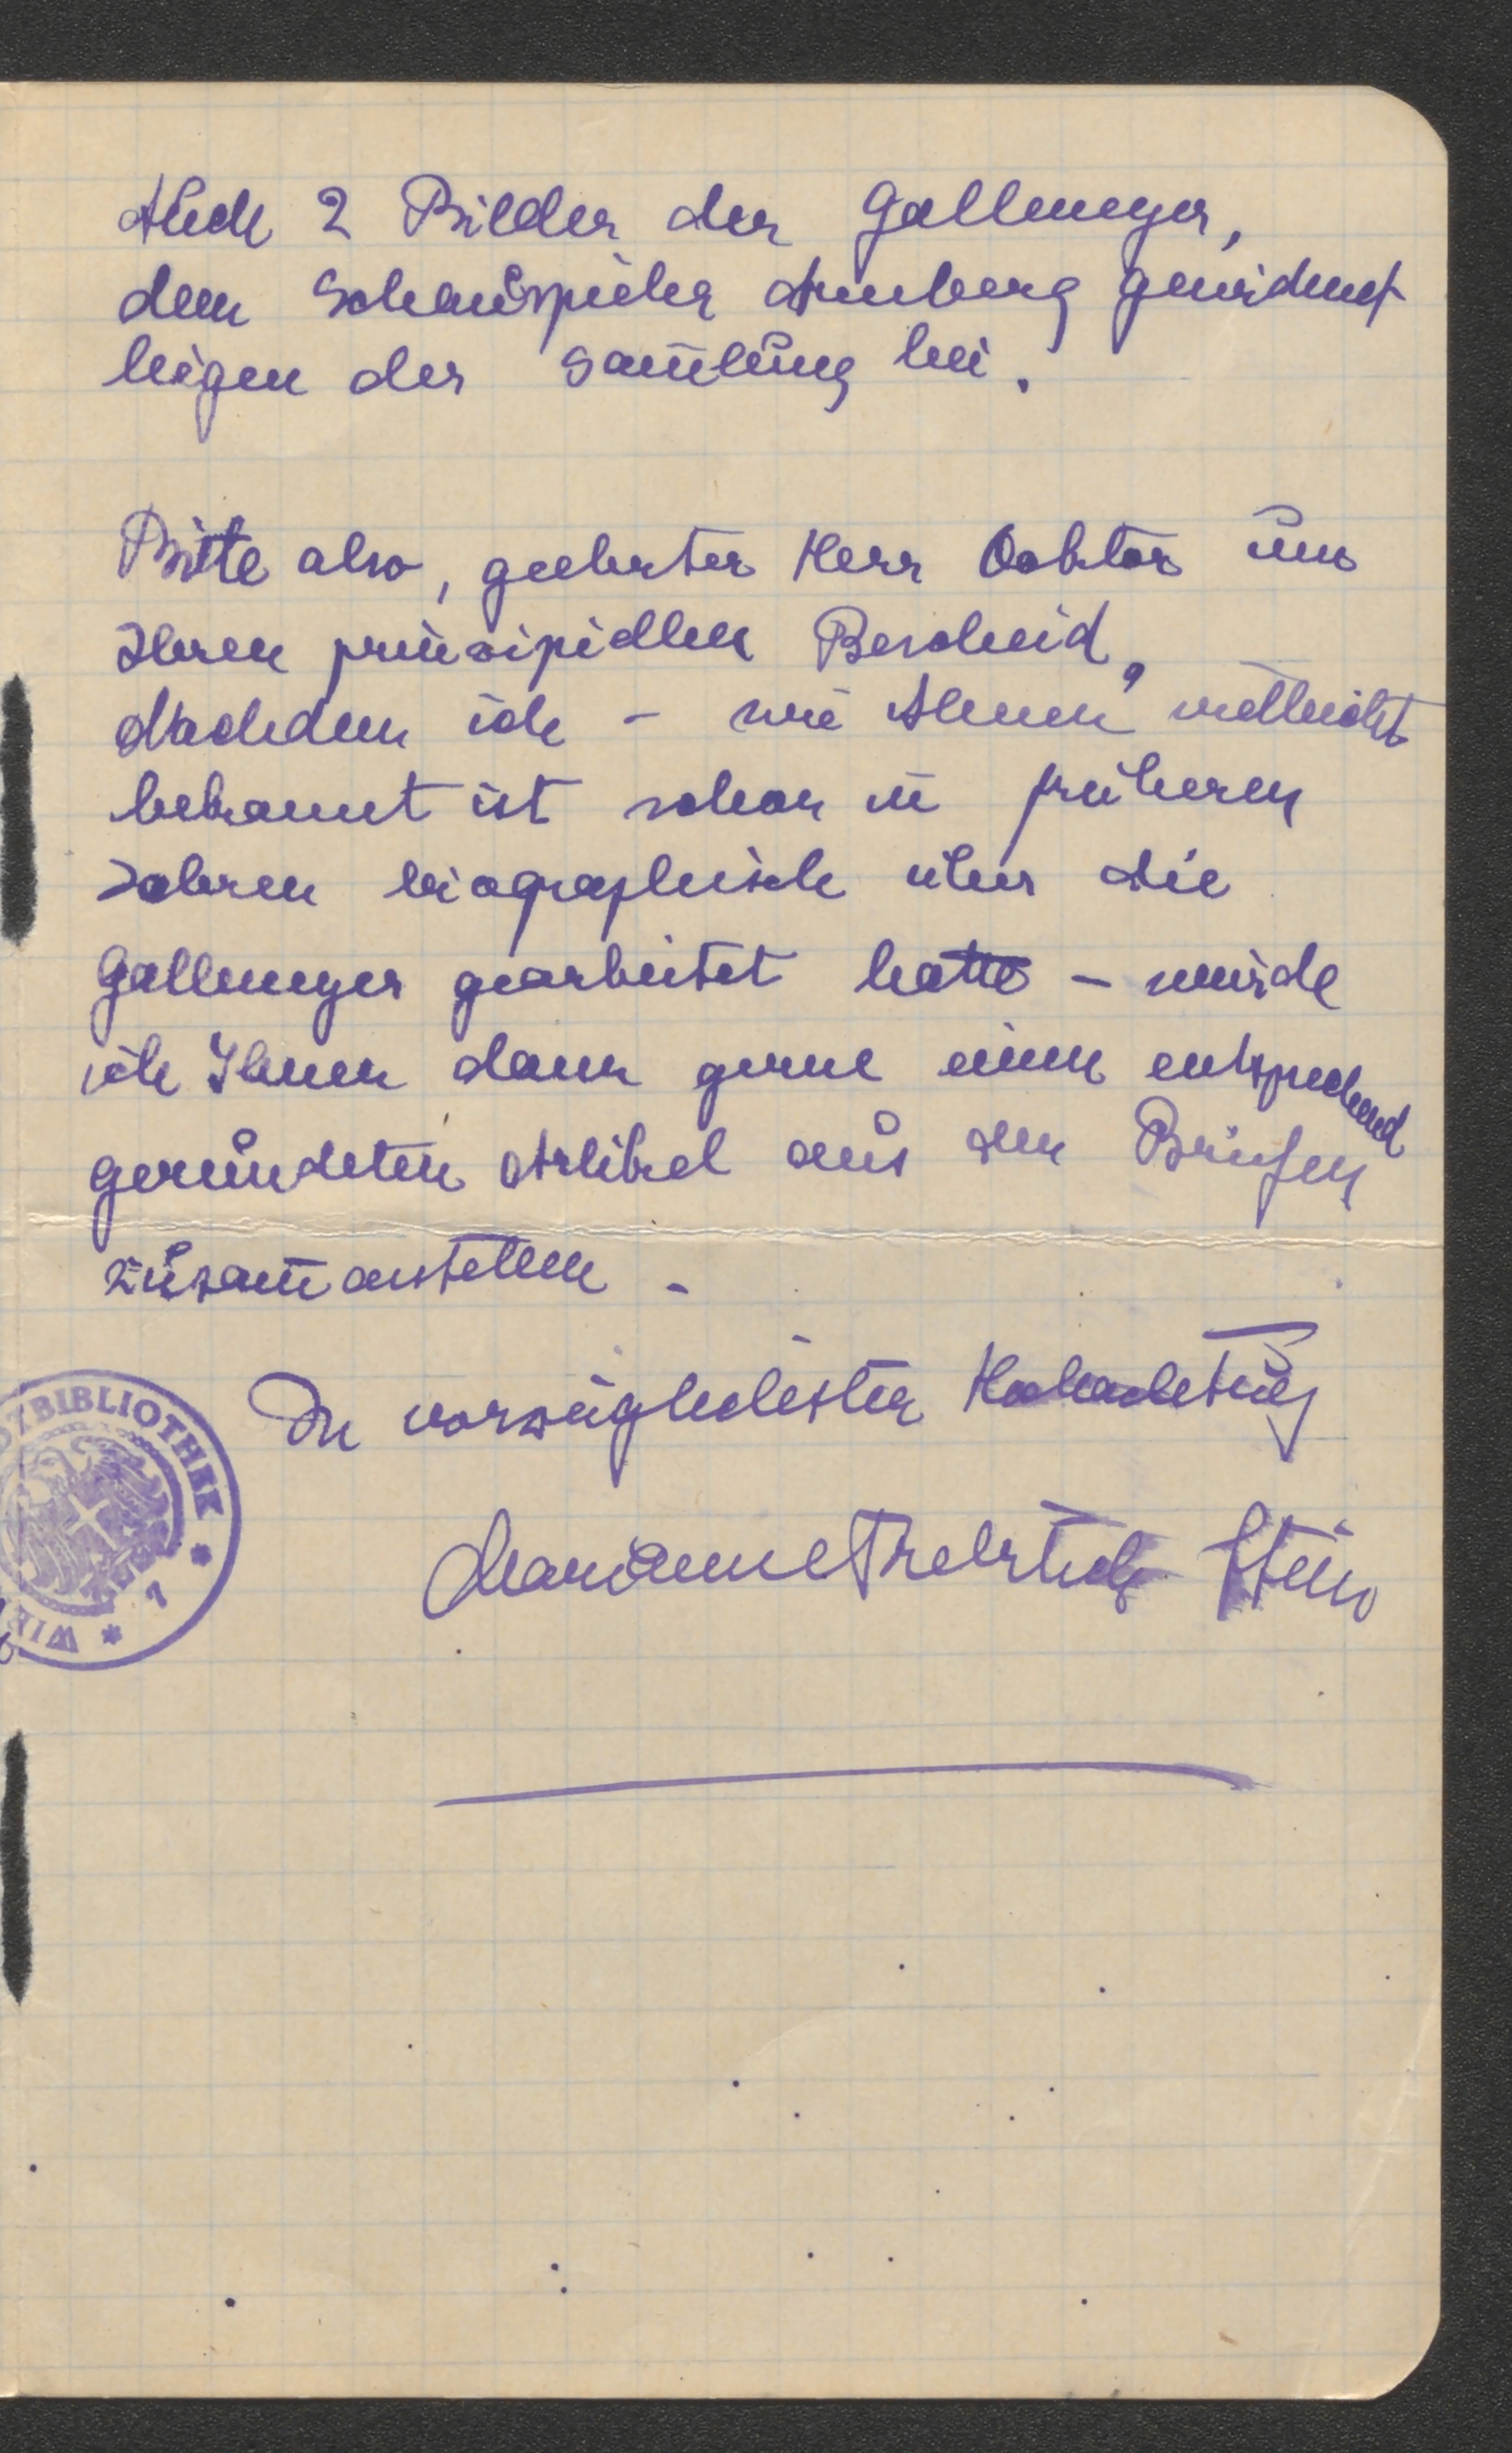 Auch 2 Bilder der Gallmeyer,
dem Schauspieler Amberg gewidmet
liegen der Sam̅lung bei.
Bitte also, geehrter Herr Doktor um
Ihren prinzipiellen Bescheid,
Nachdem ich – wie Ihnen vielleicht
bekannt ist schon in früheren
Jahren biographisch über die
Gallmeyer gearbeitet hatte – würde
ich Ihnen dann gerne einen entsprechend
gerundeten Artikel aus den Briefen
zusam̅enstellen –
In vorzüglichster Hochachtung
Marianne Stein
BIBLIOTHEK * 1 * WIE